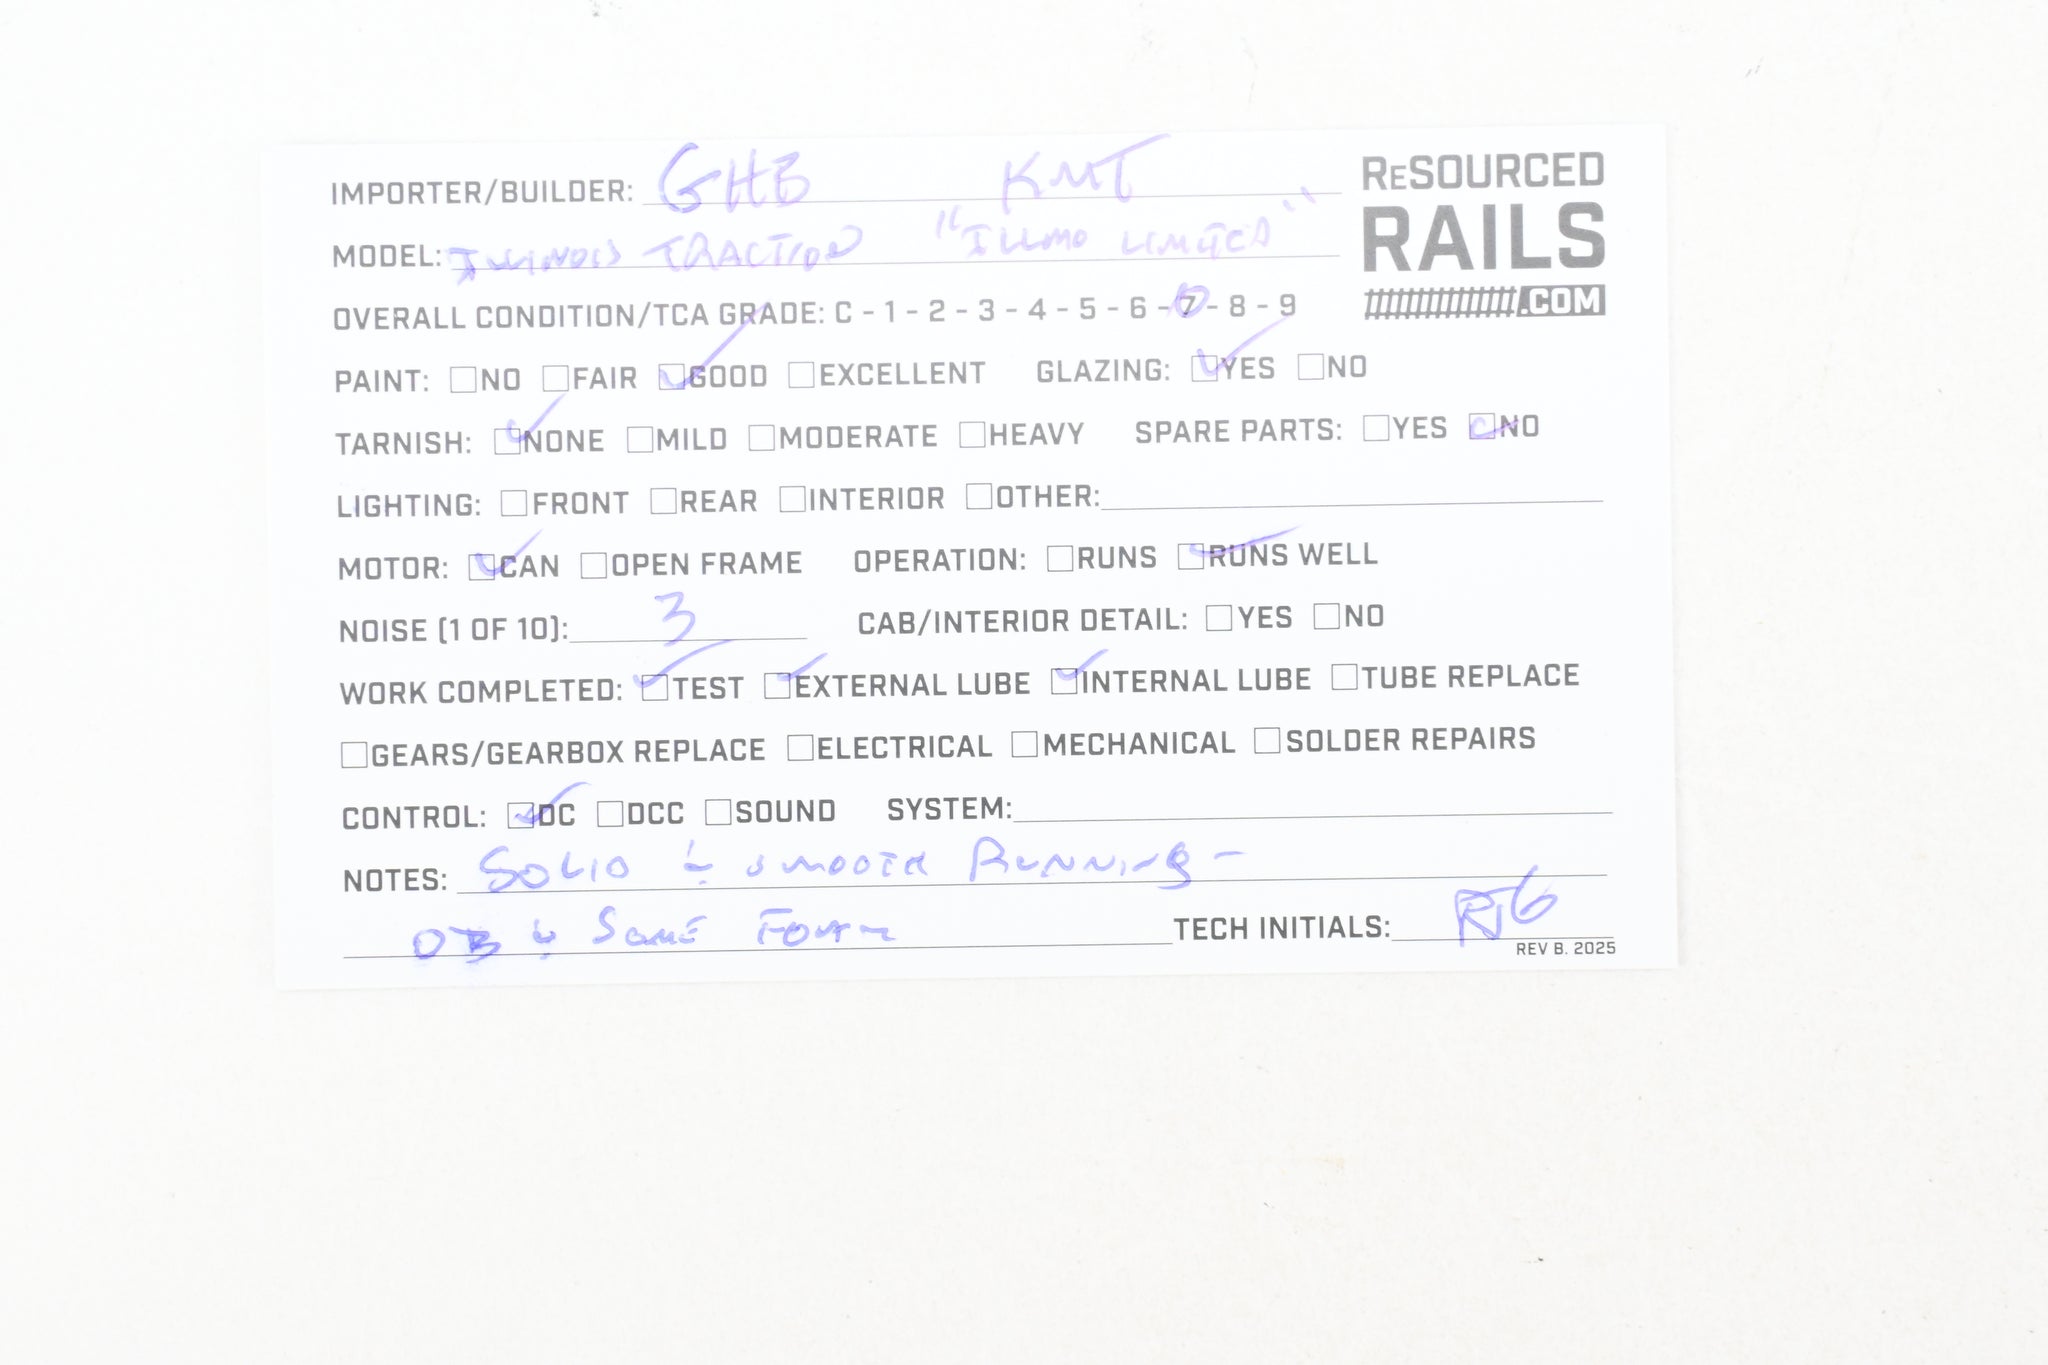 IMPORTER/BUILDER: GHB KMT
RESOURCED
RAILS
.COM
MODEL: ILLINOIS TRACTION "ILLMO LIMITED"
OVERALL CONDITION/TCA GRADE: C - 1 - 2 - 3 - 4 - 5 - 6 - 7 - 8 - 9
PAINT: NO FAIR GOOD EXCELLENT GLAZING: YES NO
TARNISH: NONE MILD MODERATE HEAVY SPARE PARTS: YES NO
LIGHTING: FRONT REAR INTERIOR OTHER:
MOTOR: CAN OPEN FRAME OPERATION: RUNS RUNS WELL
NOISE (1 OF 10): 3 CAB/INTERIOR DETAIL: YES NO
WORK COMPLETED: TEST EXTERNAL LUBE INTERNAL LUBE TUBE REPLACE
GEARS/GEARBOX REPLACE ELECTRICAL MECHANICAL SOLDER REPAIRS
CONTROL: DC DCC SOUND SYSTEM:
NOTES: SOLID & SMOOTH RUNNING -
OB & SOME FOAM TECH INITIALS:
REV B. 2025